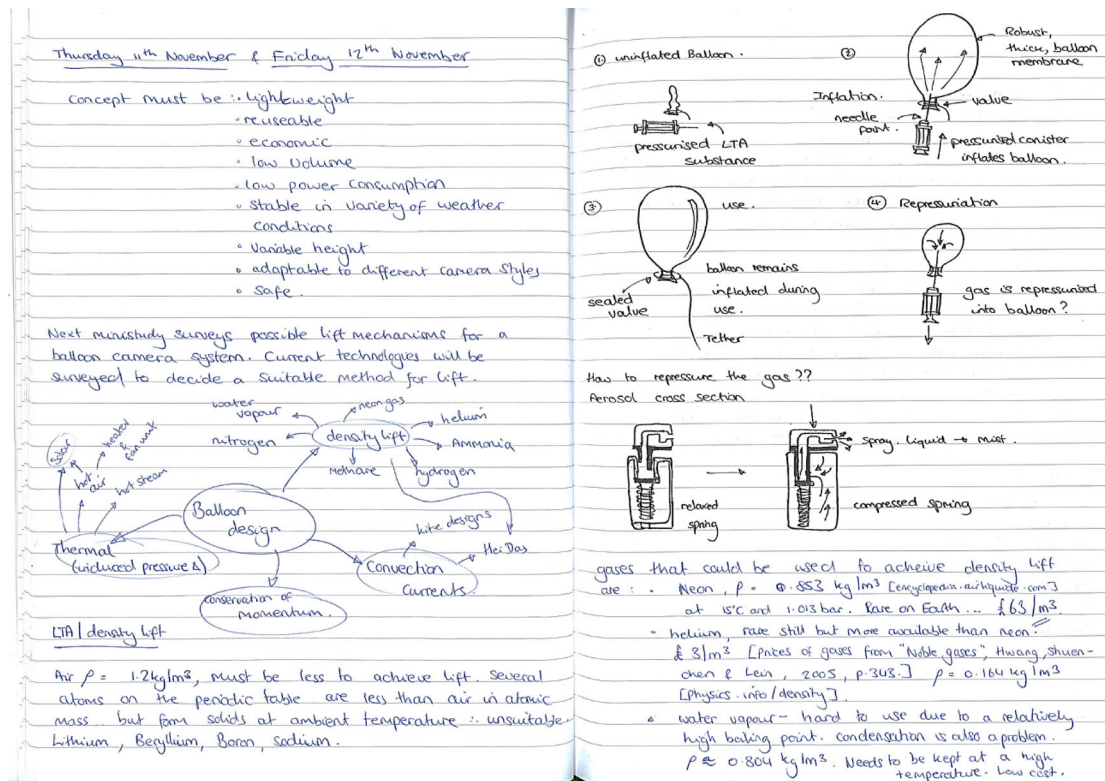 Thursday 11th November & Friday 12th November
Concept must be :· lightweight
· reuseable
· economic
· low volume
· low power consumption
· stable in variety of weather
conditions
· variable height
· adaptable to different camera styles
· safe.
Next ministudy surveys possible lift mechanisms for a
balloon camera system. Current technologies will be
surveyed to decide a suitable method for lift.
water
vapour
neon gas
helium
nitrogen
density lift
Ammonia
Methane
hydrogen
Solar
hot
air
heater
& fan unit
hot steam
Balloon
design
kite designs
HeiDas
Thermal
(induced pressure Δ)
Convection
Currents.
conservation of
momentum.
LTA / density lift
Air ρ = 1.2kg/m³, must be less to achieve lift. Several
atoms on the periodic table are less than air in atomic
mass but form solids at ambient temperature ∴ unsuitable.
Lithium, Beryllium, Boron, sodium.
① uninflated Balloon.
pressurised LTA
substance
②
Robust,
thick, balloon
membrane
Inflation.
valve
needle
point.
pressurised canister
inflates balloon.
③
use.
balloon remains
inflated during
use.
sealed
valve
Tether
④ Repressuriation
gas is repressurised
into balloon?
How to repressure the gas??
Aerosol cross section
spray. liquid → mist.
relaxed
spring
compressed spring
gases that could be used to acheive density lift
are : · Neon, ρ = 0.853 kg/m³ [encyclopedia.airliquide.com]
at 15°C and 1.013 bar. Rare on Earth ... £63/m³.
· helium, rare still but more available than neon.
£3/m³ [Prices of gases from "Noble gases", Hwang, Shuen-
chen & Lein, 2005, p.343.] ρ = 0.164 kg/m³
[Physics.info/density].
· water vapour - hard to use due to a relatively
high boiling point. condensation is also a problem.
ρ ≈ 0.804 kg/m³. Needs to be kept at a high
temperature. Low cost.